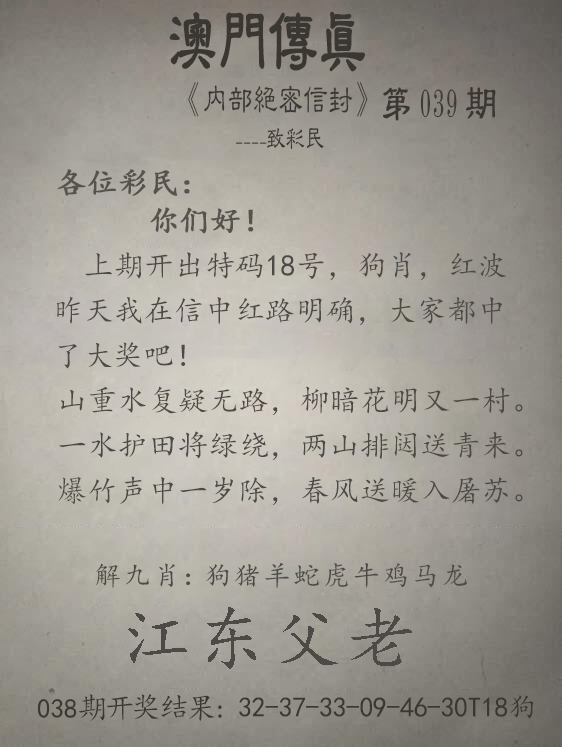 澳門傳眞
《内部絕密信封》第039期
----致彩民
各位彩民：
你们好！
上期开出特码18号，狗肖，红波
昨天我在信中红路明确，大家都中
了大奖吧！
山重水复疑无路，柳暗花明又一村。
一水护田将绿绕，两山排闼送青来。
爆竹声中一岁除，春风送暖入屠苏。
解九肖：狗猪羊蛇虎牛鸡马龙
江东父老
038期开奖结果：32-37-33-09-46-30T18狗